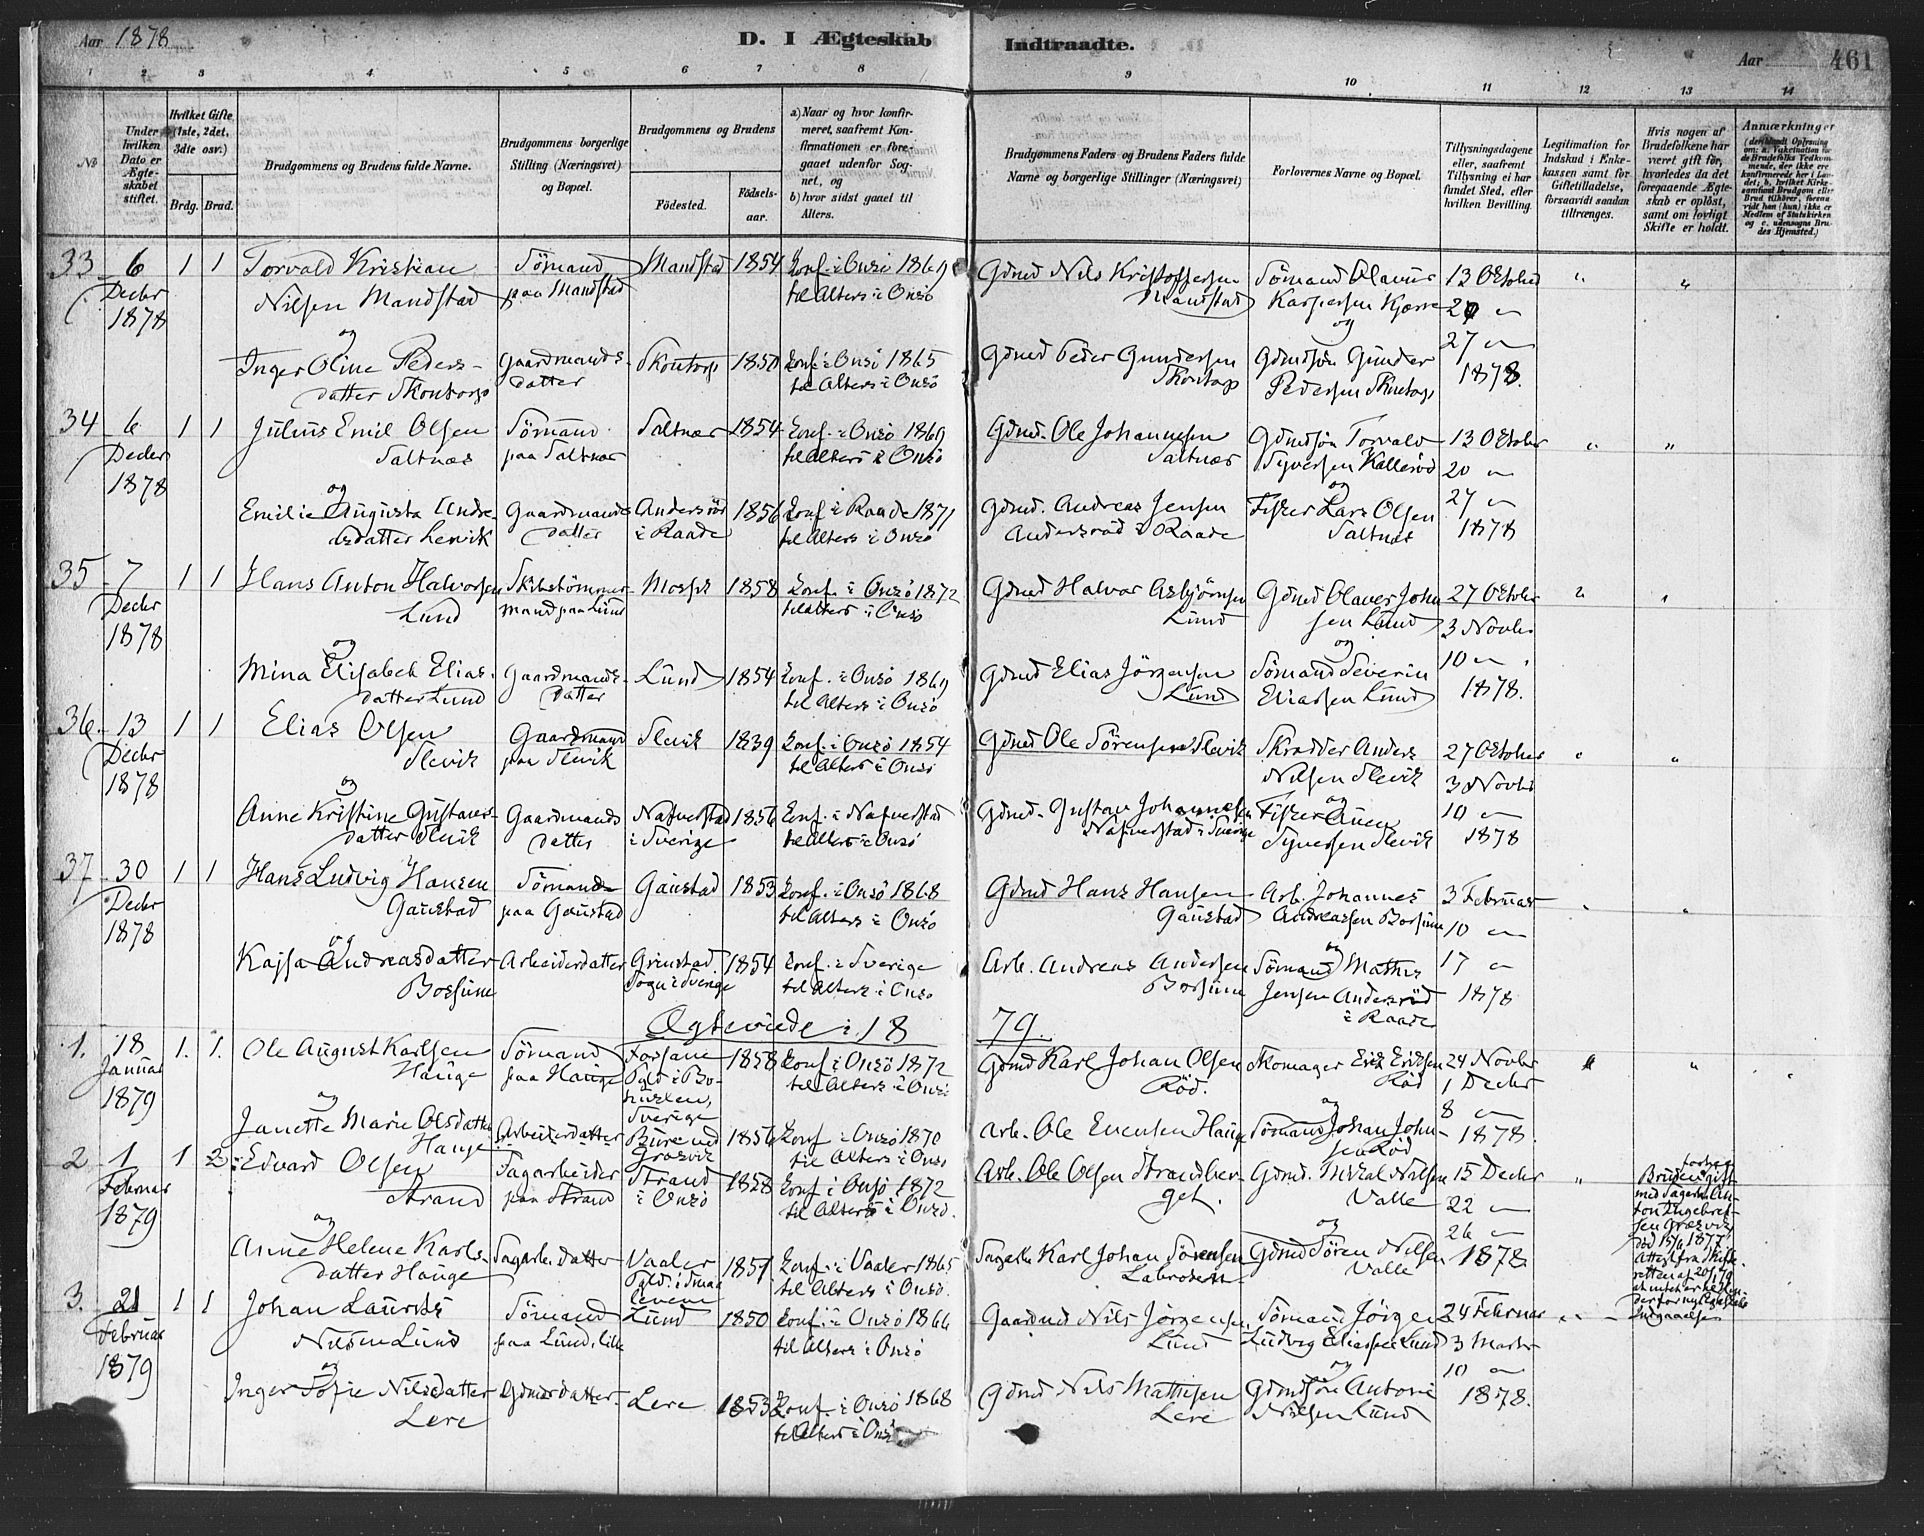 Aar 1878
D. I Ægteskab Indtraadte.
Aar 461
1 2 3 4 5 6 7 8 9 10 11 12 13 14
No
Under hvilken Dato er Ægteskabet stiftet.
Hvilket Gifte (1ste, 2det, 3die osv.)
Brdg. Brud.
Brudgommens og Brudens fulde Navne.
Brudgommens borgerlige Stilling (Næringsvei) og Bopæl.
Brudgommens og Brudens
Fødested.
Fødselsaar.
a) Naar og hvor konfirmeret, saafremt Konfirmationen er foregaaet udenfor Sognet, og
b) hvor sidst gaaet til Alters.
Brudgommens Faders og Brudens Faders fulde Navne og borgerlige Stillinger (Næringsvei)
Forlovernes Navne og Bopæl.
Tillysningsdagene eller, saafremt Tillysning ei har fundet Sted, efter hvilken Bevilling.
Legitimation for Indskud i Enkekassen samt for Giftetilladelse, forsaavidt saadan tiltrænges.
Hvis nogen af Brudefolkene har været gift før, hvorledes da det foregaaende Ægteskab er opløst, samt om lovligt Skifte er holdt.
Anmærkninger
33 6 Decbr 1878 1 1
Torvald Kristian
Nilsen Mandstad
Sömand
paa Mandstad
Mandstad 1854
Konf. i Onsö 1869
til Alters i Onsö
Gdmd Nils Kristoffersen
Mandstad
Sömand Olaus
Kaspersen Kjærre
13 Oktober
20 "
27 "
1878.
og
Inger Oline Peders-
datter Skontorp
Gaardmands-
datter
Skontorp 1850
Konf. i Onsö 1865
til Alters i Onsö
Gdmd Peder Gundersen
Skontorp
og
Gdmdsön Gunder
Pedersen Skontorp
34 6 Decbr 1878 1 1
Julius Emil Olsen
Saltnæs
Sömand
paa Saltnæs
Saltnæs 1854
Konf. i Onsö 1869
til Alters i Onsö
Gdmd. Ole Johannesen
Saltnæs
Gdmdsön Torvald
Syversen Kalleröd
13 Oktober
20 "
27 "
1878
og
Emilie Augusta Andre-
asdatter Lervik
Gaardmands
datter
Andersröd
i Raade
1856
Konf. i Raade 1871
til Alters i Onsö
Gdmd. Andreas Jensen
Andersröd i Raade
og
Fisker Lars Olsen
Saltnæs
35 7 Decbr 1878 1 1
Hans Anton Halvorsen
Lund
Skibstömmer-
mand paa Lund
Mosse 1858
Konf. i Onsö 1872
til Alters i Onsö
Gdmd Halvor Asbjörnsen
Lund
Gdmd Olaves John
sen Lund
27 Oktober
3 Novbr
10 "
1878.
og
Mina Elisabeth Elias-
datter Lund
Gaardmands-
datter
Lund 1854
Konf. i Onsö 1869
til Alters i Onsö
Gdmd Elias Jörgensen
Lund
og
Sömand Severin
Eliassen Lund
36 13 Decbr 1878 1 1
Elias Olsen
Slevik
Gaardmand
paa Slevik
Slevik 1839
Konf. i Onsö 1854
til Alters i Onsö
Gdmd Ole Sörensen Slevik
Skrædder Anders
Nilsen Slevik
27 Oktober
3 Novbr
10 "
1878
og
Anne Kristine Gustavs-
datter Slevik
Gaardmands
datter
Nafverstad
i Sverige
1856
Konf. i Nafverstad
til Alters i Onsö
Gdmd. Gustav Johannesen
Nafverstad i Sverige
og
Fisker Auen
Syversen Slevik
37 30 Decbr 1878 1 1
Hans Ludvig Hansen
Gaustad
Sömand
paa Gaustad
Gaustad 1853
Konf. i Onsö 1868
til Alters i Onsö
Gdmd Hans Hansen
Gaustad
Arb. Johannes
Andreassen Borsune
3 Februar
10 "
17 "
1878
og
Kajsa Andreasdatter
Borsune
Arbeiderdatter
Grinstad
Sogn i Sverige
1854
Konf. i Sverige
til Alters i Onsö
Arb. Andreas Andersen
Borsune
og
Sömand Mathis
Jensen Andersröd
i Raade
Ægteviede i 1879.
1. 18 Januar 1879 1. 1.
Ole August Karlsen
Hauge
Sömand
paa Hauge
Forsane
Pgld i Bo-
huslen,
Sverige
1858
Konf. i Onsö 1872
til Alters i Onsö
Gdmd Karl Johan Olsen
Röd.
Skomager Erik Eriksen
Röd
24 Novbr
1 Decbr
8 "
1878.
og
Janette Marie Olsdatter
Hauge
Arbeiderdatter
Bure ved
Græsvik
1856
Konf. i Onsö 1870
til Alters i Onsö
Arb. Ole Evensen Hauge
og
Sömand Johan John-
sen Röd
2 1 Februar 1879 1 2
Edvard Olsen
Strand
Sagarbeider
paa Strand
Strand
i Onsö
1858
Konf i Onsö 1872
til Alters i Onsö.
Arb. Ole Olsen Strandber
get.
Gdmd. Mikal Nilsen
Valle
15 Decbr
22 "
26 "
1878
og
Anne Helene Karls-
datter Hauge
Sagarb. datter
Vaaler
1851
Konf. i Vaaler 1865
til Alters i Onsö.
Sagarb Karl Johan Sörensen
og
Gdmd Sören Nilsen
Valle
Bruden forhen gift
med Sagarb. An-
ton Ingebret-
sen Græsvik
död 15/6 1877
Attest fra Skifte
retten af 20/1 79
3. 21 Februar 1879 1 1
Johan Laurits
Nilsen Lund
Sömand
paa Lund, lille
Lund 1850
Konf. i Onsö 1866
til Alters i Onsö
Gaardmd Nils Jörgensen
Lund
Sömand Jörgen
Ludvig Eliassen Lund
24 Februar
3 Marts
10 "
1878.
og
Inger Sofie Nilsdatter
Lere
Gdmdsdatter
Lere 1853
Konf. i Onsö 1868
til Alters i Onsö
Gdmd Nils Mathisen
Lere
og
Gdmdsön Antoni
Nilsen Lund